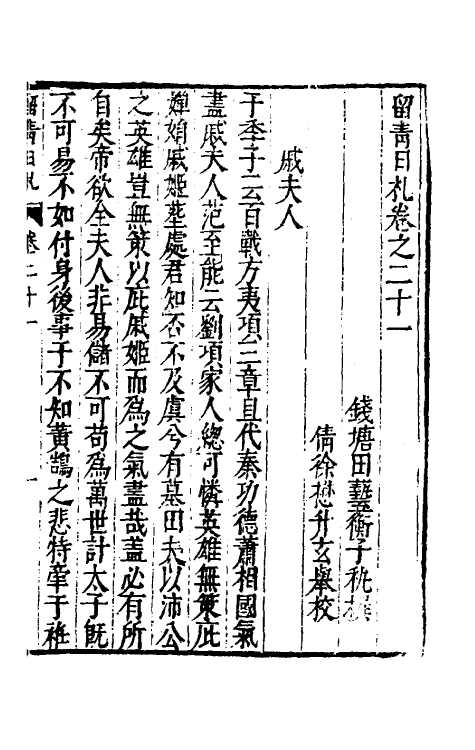 留青日札卷之二十一
錢塘田藝蘅子秇撰
倩徐懋升玄舉校
戚夫人
于季子云百戰方夷項三章且代秦功德蕭相國氣
盡戚夫人范至能云劉項家人總可憐英雄無策庇
嬋娟戚姬葬處君知否不及虞兮有墓田夫以沛公
之英雄豈無策以庇戚姬而為之氣盡哉蓋必有所
自矣帝欲全夫人非易儲不可苟為萬世計太子旣
不可易不如付身後事于不知黃鵠之悲特牽于袵
留青日札 卷二十一 一